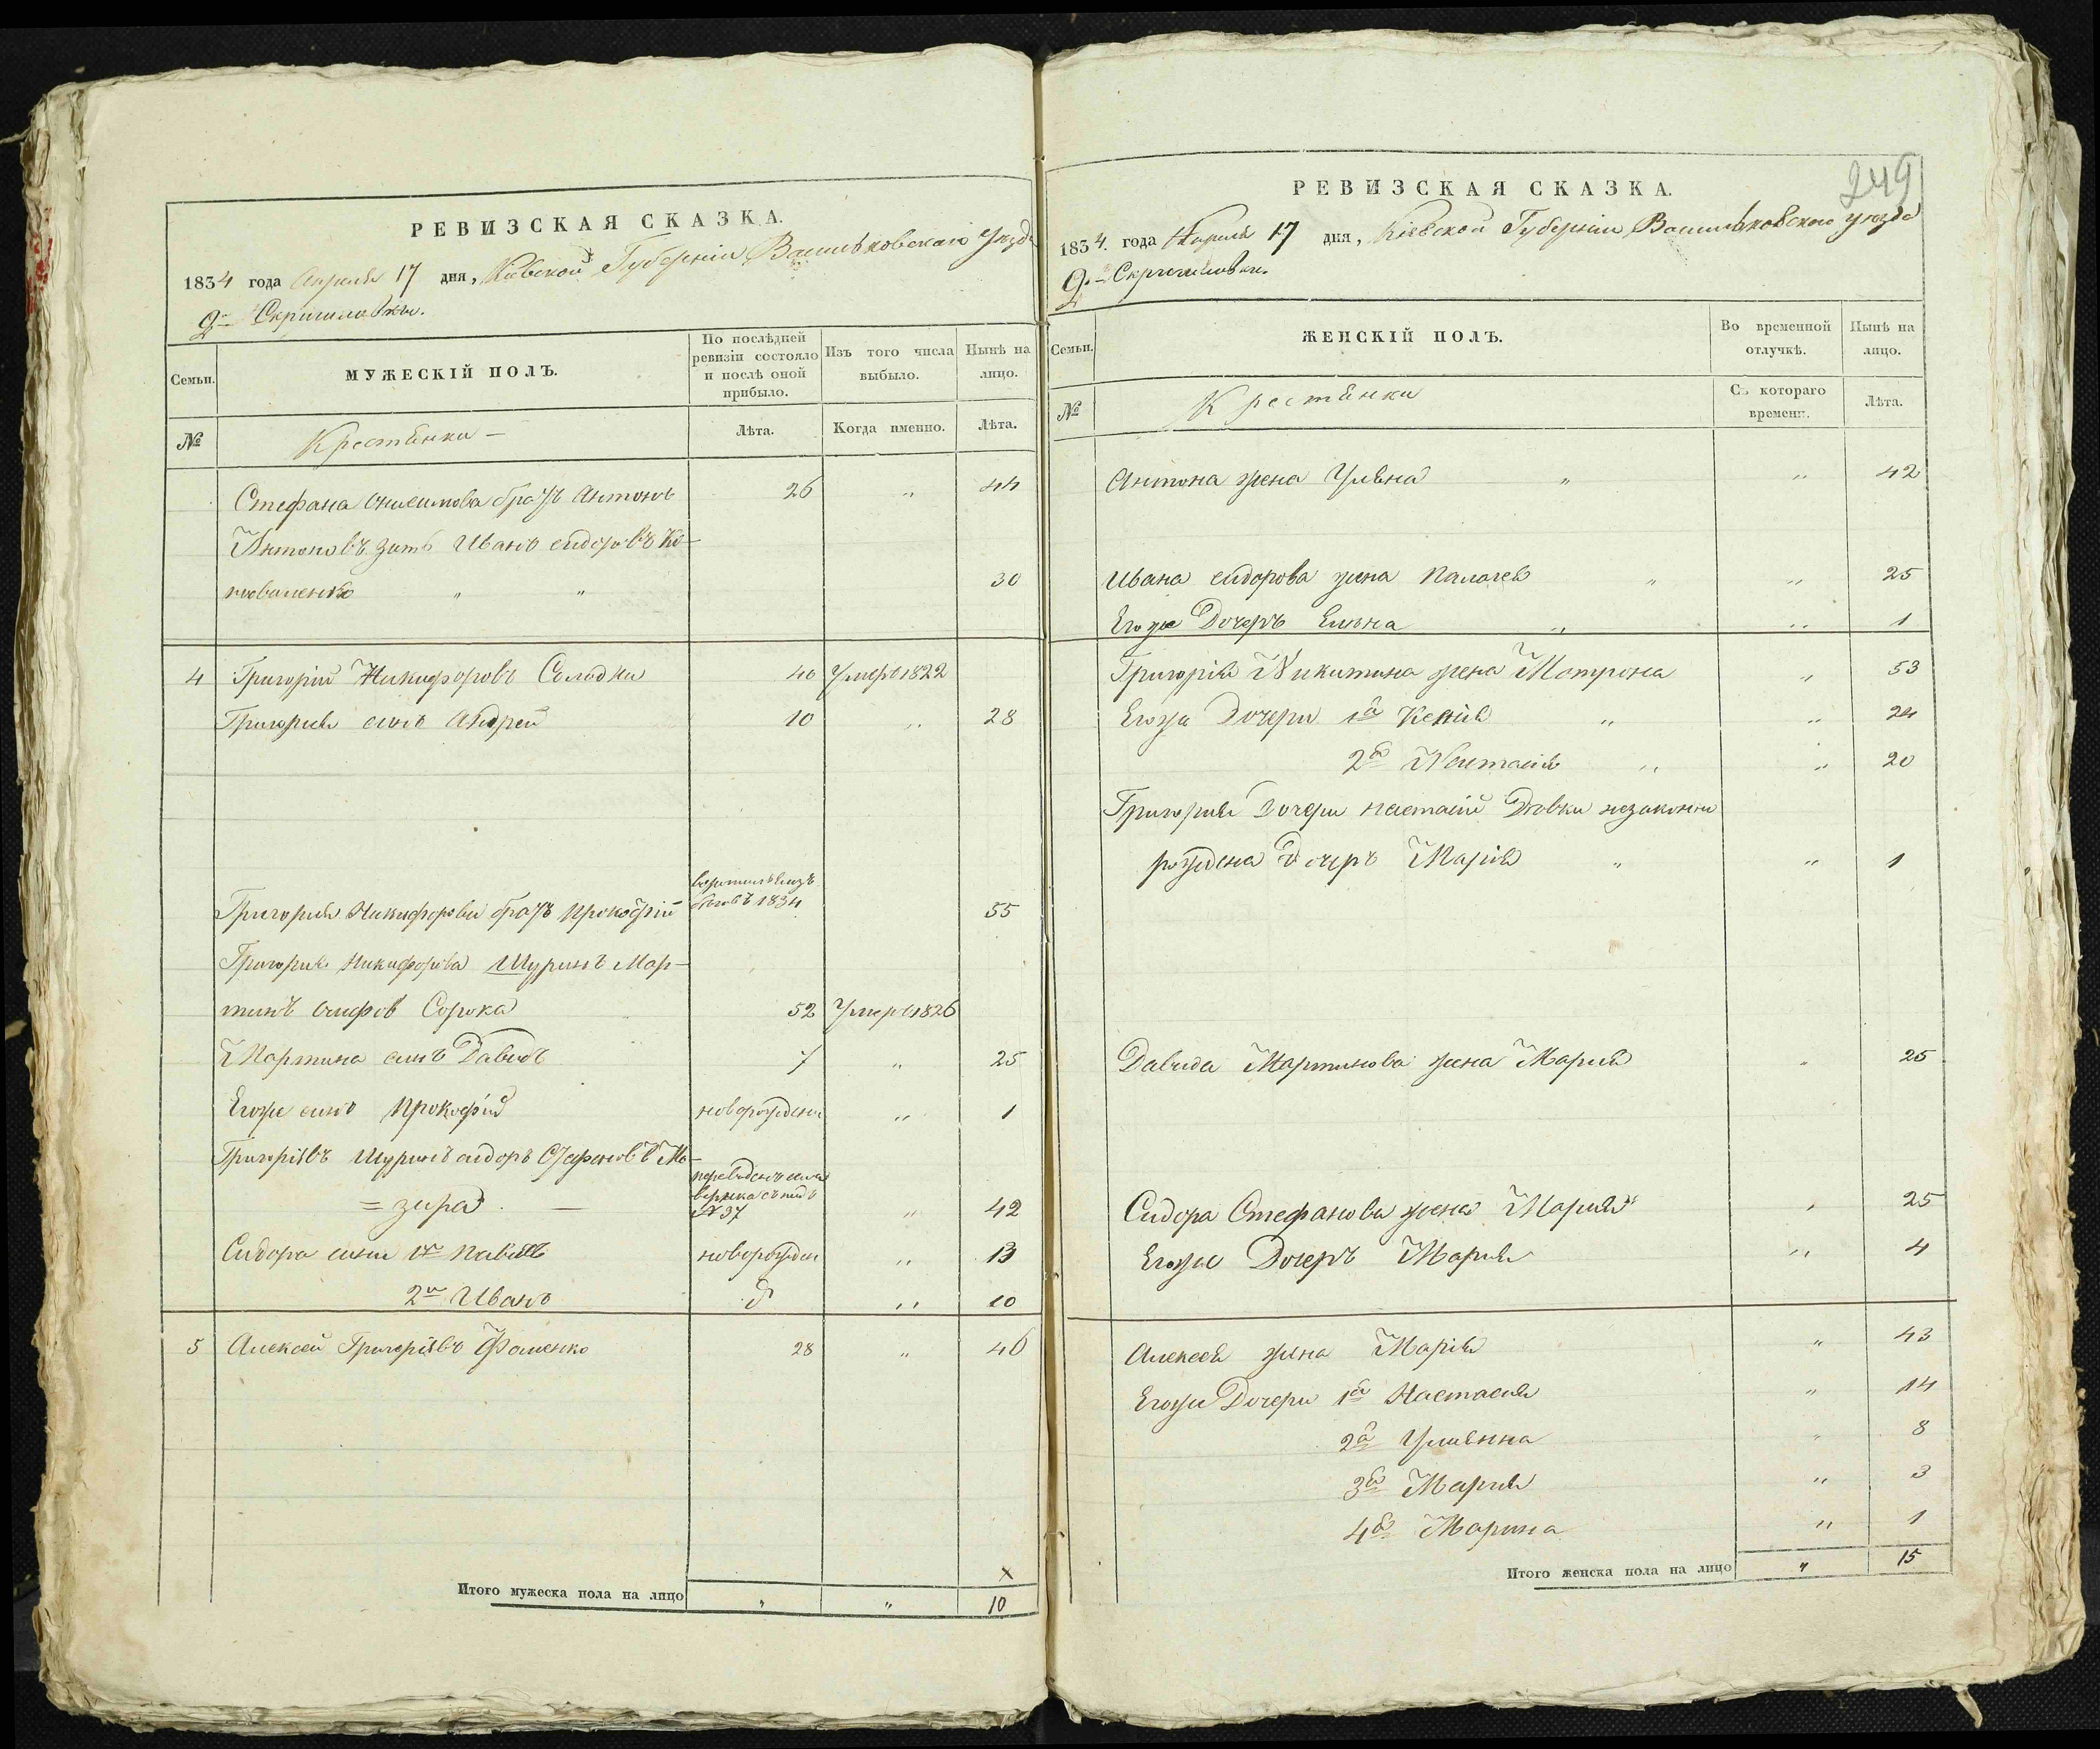 РЕВИЗСКАЯ СКАЗКА.
1834 года Апреля 17 дня, Киевской Губернии Васильковскаго уезда
Д. Скригаловки.
Семьи.
МУЖЕСКІЙ ПОЛЪ.
По послѣдней ревизіи состояло и послѣ оной прибыло.
Изъ того числа выбыло.
Нынѣ на лицо.
№
Крестьяни —
Лѣта.
Когда именно.
Лѣта.
Стефана Анисимова братъ Антонъ 26 „ 44
Антоновъ зать Иванъ Сидоровъ Ко-
новаленко „ „ 30
4 Григорій Никифоровъ Солодки 40 Умеръ 1822
Григория сынъ Андрей 10 „ 28
Григория Никифорова братъ Прокофій 1834 55
Григория Никифорова Шуринъ Мар-
тинъ Сорока 52 Умеръ 1826
Мартина синъ Давидъ 7 „ 25
Егоже синъ Прокофій новорожден „ 1
Григоріевъ Шуринъ Сидоръ Стефановъ Ма-
= зира — переведенъ № 37 „ 42
Сидора сини 1й Павелъ новорожден „ 13
2й Иванъ д „ 10
5 Алексей Григоріевъ Фоменко 28 „ 46
X
Итого мужеска пола на лицо „ „ 10
249
РЕВИЗСКАЯ СКАЗКА.
1834. года Апреля 17 дня, Кіевской Губерніи Васильковского уезда
Д. Скригаловки.
Семьи.
ЖЕНСКІЙ ПОЛЪ.
Во временной отлучкѣ.
Нынѣ на лицо.
№
Крестянки
Съ котораго времени.
Лѣта.
Антона жена Уляна „ „ 42
Ивана Сидорова жена Палагея „ „ 25
Егоже Дочеръ Елена „ „ 1
Григорія Никитина жена Мотрона „ 53
Егожа Дочери 1а Ксенія „ „ 24
2а Настасія „ „ 20
Григория Дочери Настасии Дівки незаконно
рождена Дочеръ Марія „ „ 1
Давида Мартинова жена Мария „ 25
Сидора Стефанова жена Мария „ 25
Егоже Дочеръ Мария „ 4
Алексея жена Марія „ 43
Егоже Дочери 1а Настасия „ 14
2а Улиянна „ 8
3а Мария „ 3
4а Марина „ 1
Итого женска пола на лицо „ 15